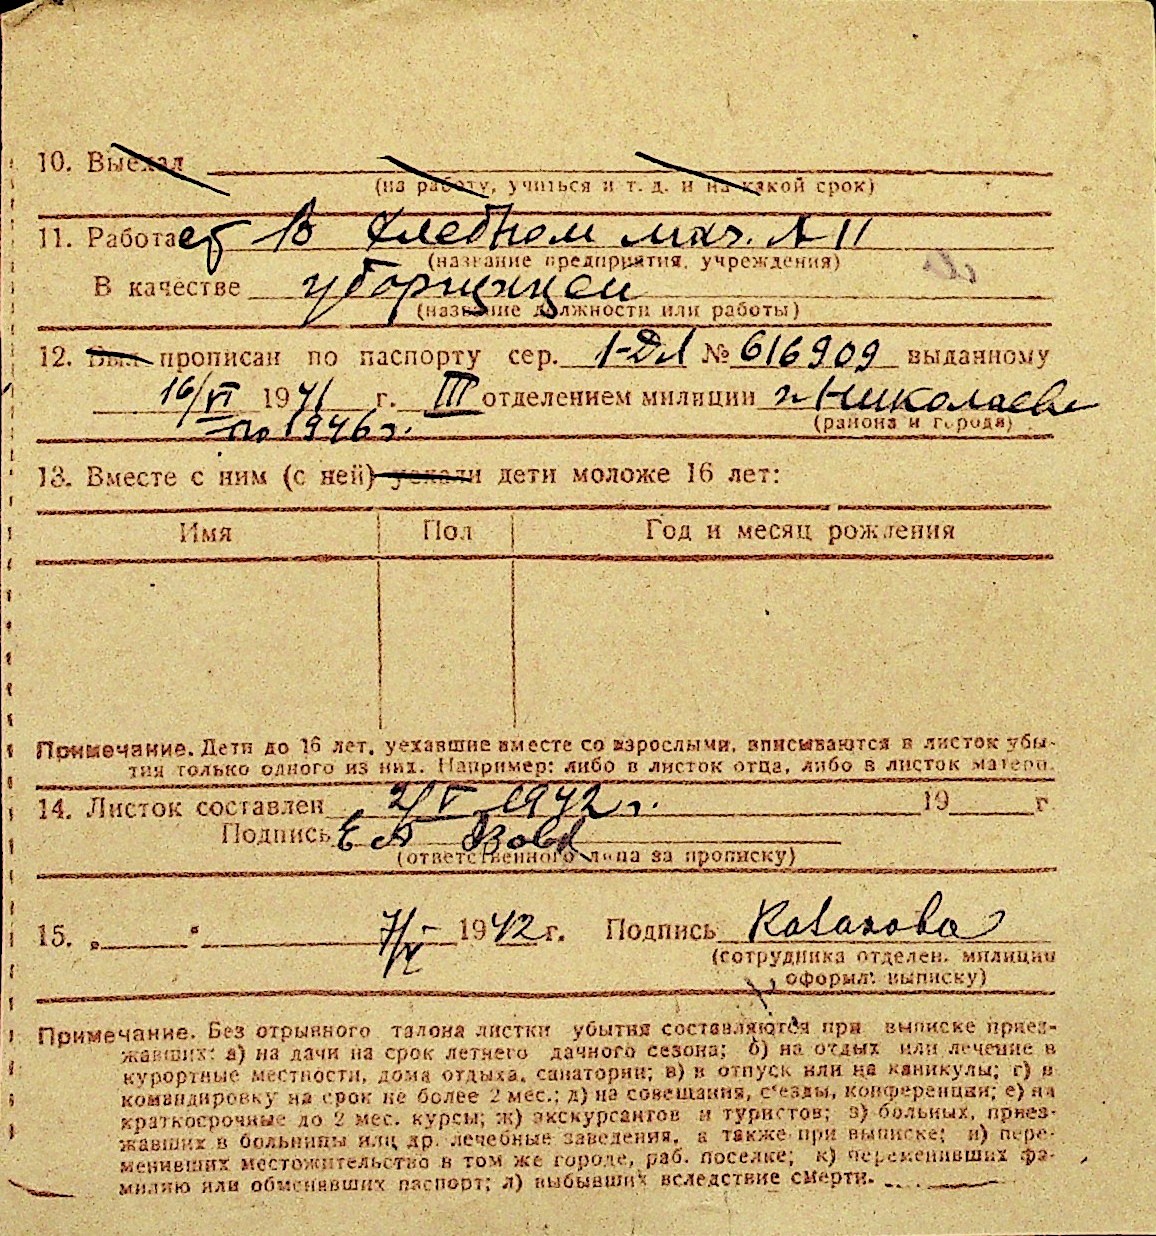 10. Выехал
(на работу, учиться и т. д. и на какой срок)
11. Работает в хлебном маг. № 11
(название предприятия, учреждения)
В качестве уборщицей
(название должности или работы)
12. Был прописан по паспорту сер. I-ДЛ № 616909 выданному
16/VI 1941 г. III отделением милиции г. Николаева
(района и города)
по 1946 г.
13. Вместе с ним (с ней) уехали дети моложе 16 лет:
Имя Пол Год и месяц рождения
Примечание. Дети до 16 лет, уехавшие вместе со взрослыми, вписываются в листок убы-
тия только одного из них. Например: либо в листок отца, либо в листок матери.
14. Листок составлен 2/V 1942 г. 19 г
Подпись
(ответственного лица за прописку)
15. „ “ 7/V 1942 г. Подпись Казакова
(сотрудника отделен. милиции
оформл. выписку)
Примечание. Без отрывного талона листки убытия составляются при выписке приез-
жавших: а) на дачи на срок летнего дачного сезона; б) на отдых или лечение в
курортные местности, дома отдыха, санатории; в) в отпуск или на каникулы; г) в
командировку на срок не более 2 мес.; д) на совещания, с'езды, конференции; е) на
краткосрочные до 2 мес. курсы; ж) экскурсантов и туристов; з) больных, приез-
жавших в больницы или др. лечебные заведения, а также при выписке; и) пере-
менивших местожительство в том же городе, раб. поселке; к) переменивших фа-
милию или обменявших паспорт; л) выбывших вследствие смерти.